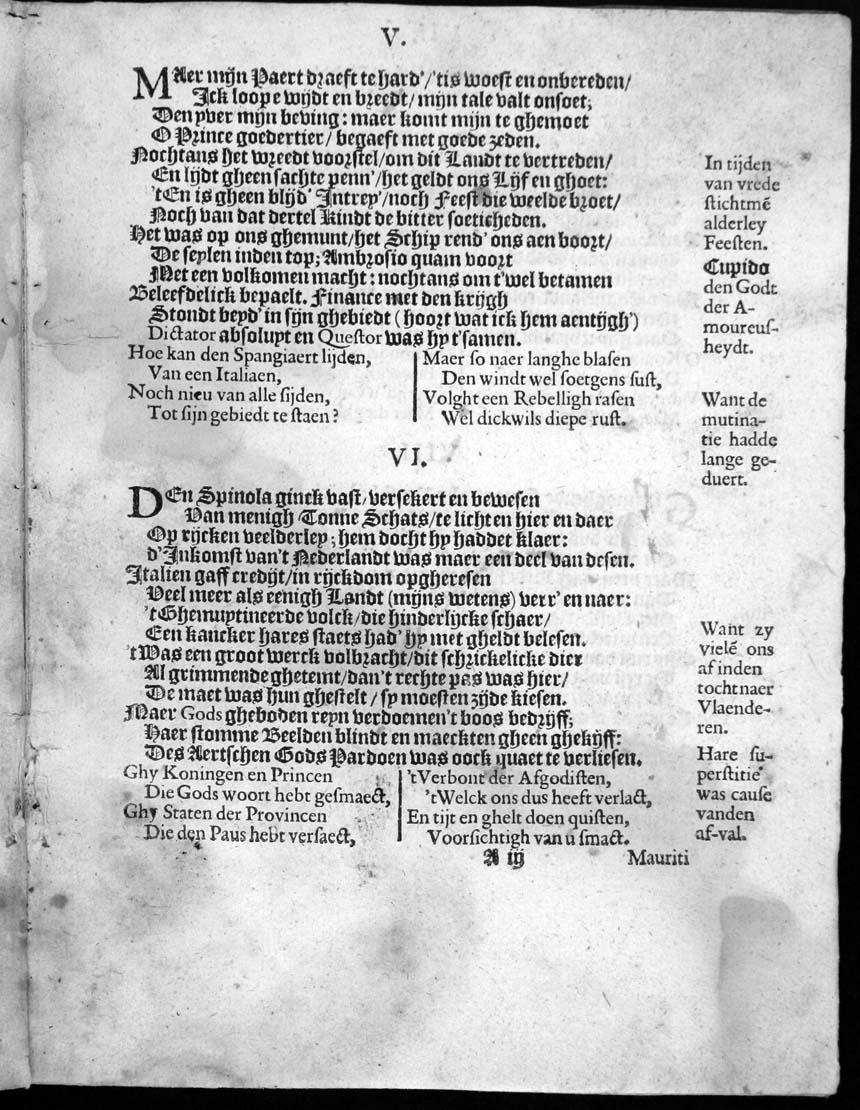 V.
MAer mijn Paert draeft te hard'/'tis woest en onbereden/
Ick loope wijdt en breedt/ mijn tale valt onsoet;
Den yver mijn beving: maer komt mijn te ghemoet
O Prince goedertier/ begaeft met goede zeden.
Nochtans het wreedt voorstel/om dit Landt te vertreden/
En lijdt gheen sachte penn'/het geldt ons Lijf en ghoet:
'tEn is gheen blijd' Intrey'/noch Feest die weelde broet/
Noch van dat dertel kindt de bitter soeticheden.
Het was op ons ghemunt/het Schip rend' ons aen boort/
De seylen inden top; Ambrosio quam voort
Met een volkomen macht: nochtans om t'wel betamen
Beleefdelick bepaelt. Finance met den krijgh
Stondt beyd' in sijn ghebiedt (hoort wat ick hem aentijgh')
Dictator absolupt en Questor was hy t'samen.
Hoe kan den Spangiaert lijden,
Van een Italiaen,
Noch nieu van alle sijden,
Tot sijn gebiedt te staen?
Maer so naer langhe blasen
Den windt wel soetgens sust,
Volght een Rebelligh rasen
Wel dickwils diepe rust.
In tijden
van vrede
stichtmē
alderley
Feesten.
Cupido
den Godt
der A-
moureus-
heydt.
Want de
mutina-
tie hadde
lange ge-
duert.
VI.
DEn Spinola ginck vast/ versekert en bewesen
Van menigh Tonne Schats/te lichten hier en daer
Op rijcken veelderley; hem docht hy haddet klaer:
d'Inkomst van't Nederlandt was maer een deel van desen.
Italien gaff credijt/in rijckdom opgheresen
Veel meer als eenigh Landt (mijns wetens) verr' en naer:
'tGhemuptineerde volck/die hinderlijcke schaer/
Een kancker hares staets had' hy met gheldt belesen.
'tWas een groot werck volbracht/dit schrickelicke dier
Al grimmende ghetemt/dan't rechte pas was hier/
De maet was hun ghestelt/ sy moesten zijde kiesen.
Maer Gods gheboden reyn verdoemen't boos bedrijff;
Haer stomme Beelden blindt en maeckten gheen ghekijff:
Des Aertschen Gods Pardoen was oock quaet te verliesen.
Ghy Koningen en Princen
Die Gods woort hebt gesmaect,
Ghy Staten der Provincen
Die den Paus hebt versaect,
'tVerbont der Afgodisten,
'tWelck ons dus heeft verlact,
En tijt en ghelt doen quisten,
Voorsichtigh van u smact.
Want zy
vielē ons
af inden
tocht naer
Vlaende-
ren.
Hare su-
perstitie
was cause
vanden
af-val.
A iij
Mauriti